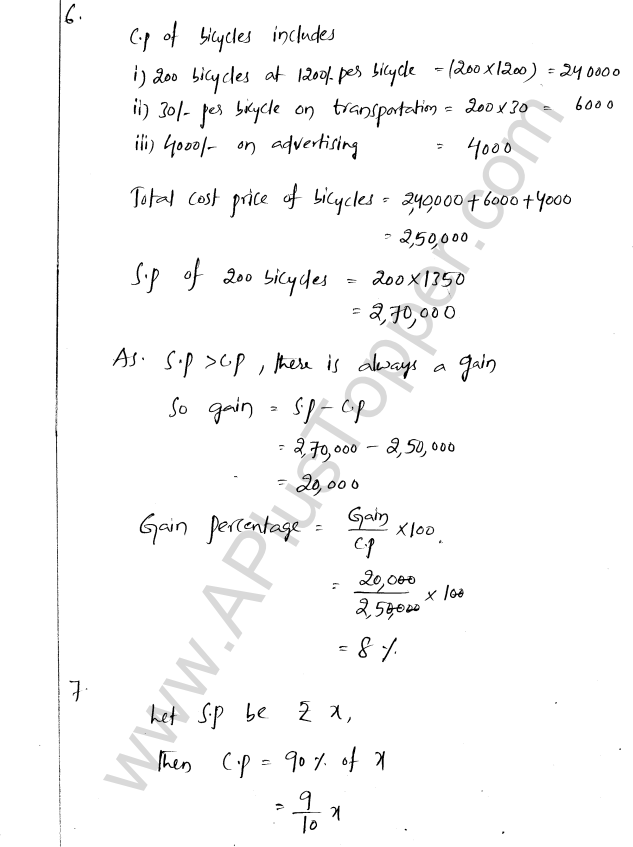 6.
C.p of bicycles includes
i) 200 bicycles at 1200/- per bicycle = (200 x 1200) = 240000
ii) 30/- per bicycle on transportation = 200 x 30 = 6000
iii) 4000/- on advertising = 4000
Total cost price of bicycles = 2,40,000 + 6000 + 4000
= 2,50,000
S.p of 200 bicycles = 200 x 1350
= 2,70,000
As. S.p > C.p, there is always a gain
So gain = S.p - C.p
= 2,70,000 - 2,50,000
= 20,000
Gain percentage = Gain/C.p x 100.
= 20,000/2,50,000 x 100
= 8 %
7.
Let S.p be ₹ x,
Then C.p = 90 % of x
= 9/10 x
www.APlusTopper.com